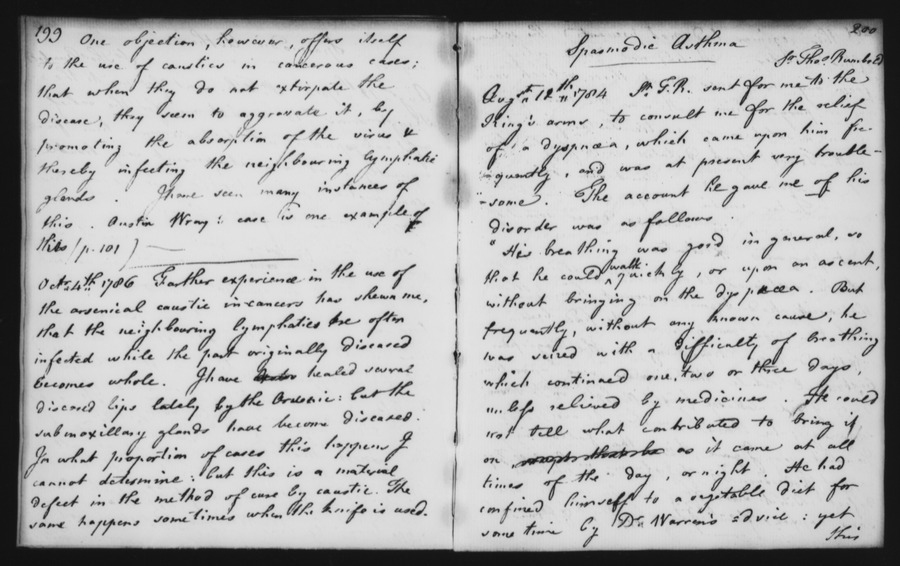 199
One objection, however, offers itself
to the use of caustics in cancerous cases;
that when they do not extirpate the
disease, they seem to aggravate it, by
promoting the absorption of the virus &
thereby infecting the neighbouring lymphatic
glands. I have seen many instances of
this. Austin Wray's case is one example of
this (p. 101)
Octr. 4th. 1786 Farther experience in the use of
the arsenical caustic in cancers has shewn me,
that the neighbouring lymphatics are often
infected while the part originally diseased
becomes whole. I have healed several
diseased lips lately by the Arsenic: but the
submaxillary glands have become diseased.
In what proportion of cases this happens I
cannot determine: but this is a material
defect in the method of cure by caustic. The
same happens sometimes when the knife is used.
200
Spasmodic Asthma
Sr. Thos. Rumbold
Augst. 12th. 1784 Sr. T. R. sent for me to the
King's arms, to consult me for the relief
of a dyspnœa, which came upon him fre-
quently, and was at present very trouble-
-some. The account he gave me of his
disorder was as follows.
"His breathing was good in general, so
that he could walk quickly, or upon an ascent,
without bringing on the dyspnœa. But
frequently, without any known cause, he
was seized with a difficulty of breathing
which continued one, two or three days,
unless relieved by medicines. He could
not tell what contributed to bring it
on as it came at all
times of the day, or night. He had
confined himself to a vegetable diet for
some time by Dr. Warren's advice: yet
this